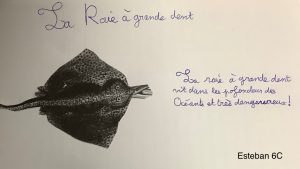 La Raie à grande dent
La raie à grande dent
vit dans les profondeurs des
Océans et très dangerereuse!
Esteban 6C